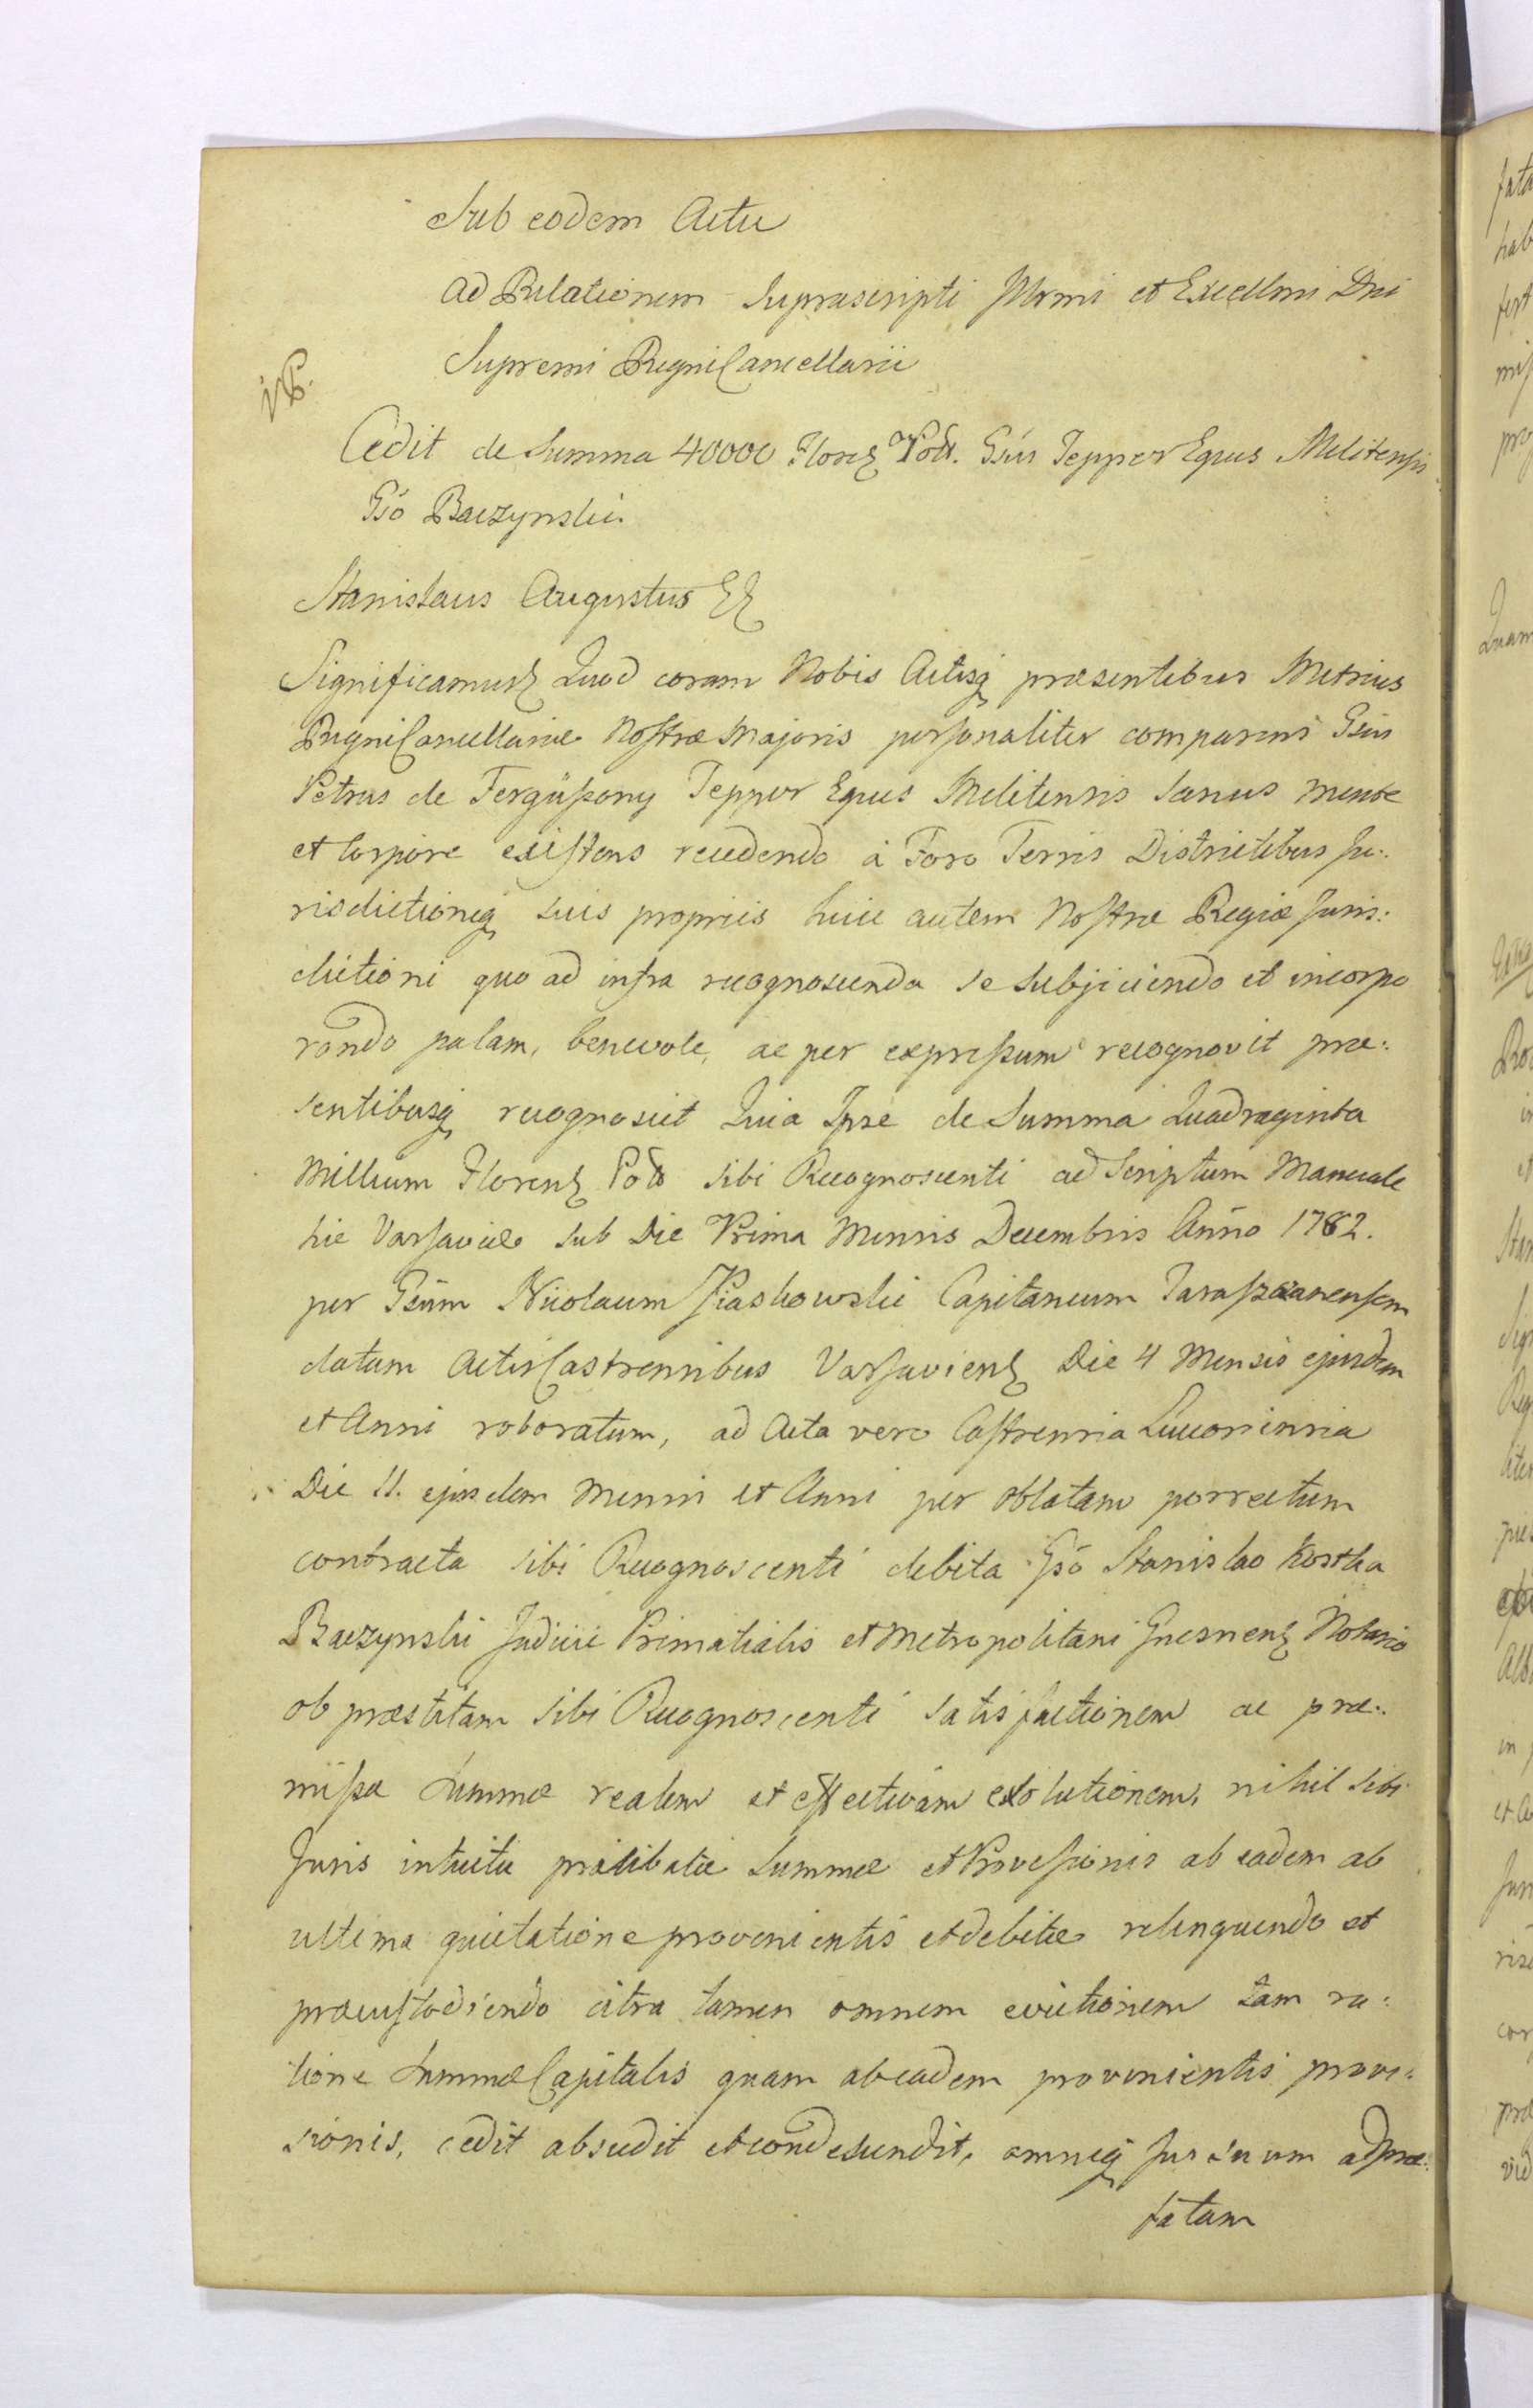 Sub eodem Actu
Ad Relationem Suprascripti Illrmi et Excellmi Dni
Supremi Regni Cancellarii
Cedit de Summa 40000 Floren Poll. Gsus Tepper Eques Melitensis
Gso Baczynski.
Stanislaus Augustus
Significamus Quod coram Nobis Actisq praesentibus Metrices
Regni Cancellariae Nostrae Majoris personaliter comparens Gsus
Petrus de Fergüssony Tepper Eques Melitensis Sanus mente
et Corpore existens recedendo à Foro Terris Districtibus Ju:
risdictioneq suis propriis huic autem Nostrae Regiae Juris:
dictioni quo ad infra recognoscenda se subjiciendo et incorpo
rando palam, benevole, ac per expressum recognovit prae:
sentibusq recognoscit Quia Ipse de Summa Quadraginta
Millium Floren Poll Sibi Recognoscenti ad Scriptum Manuale
hic Varsaviae sub Die Prima Mensis Decembris Anno 1782.
per Gsum Nicolaum Piaskowski Capitaneum Taraszczanensem
datum Actis Castrensibus Varsavien Die 4 Mensis ejusdem
et Anni roboratum, ad Acta vero Castrensia Luceoriensia
Die 11. ejusdem Mensis et Anni per oblatam porrectum
contracta sibi Recognoscenti debita Gso Stanislao Kostka
Baczynski Judicii Primatialis et Metropolitani Gnesnen Notario
ob praestitam sibi Recognoscenti satisfactionem ac prae:
missae Summae realem et effectivam exolutionem, nihil sibi
Juris intuitu praelibatae Summae et Provisionis ab eadem ab
ultima quietatione provenientis et debitae relinquendo et
praecustodiendo citra tamen omnem evictionem tam ra:
tione Summae Capitalis quam ab eadem provenientis provi:
sionis, cedit abscedit et condescendit, omneq Jus suum ad prae:
fatam